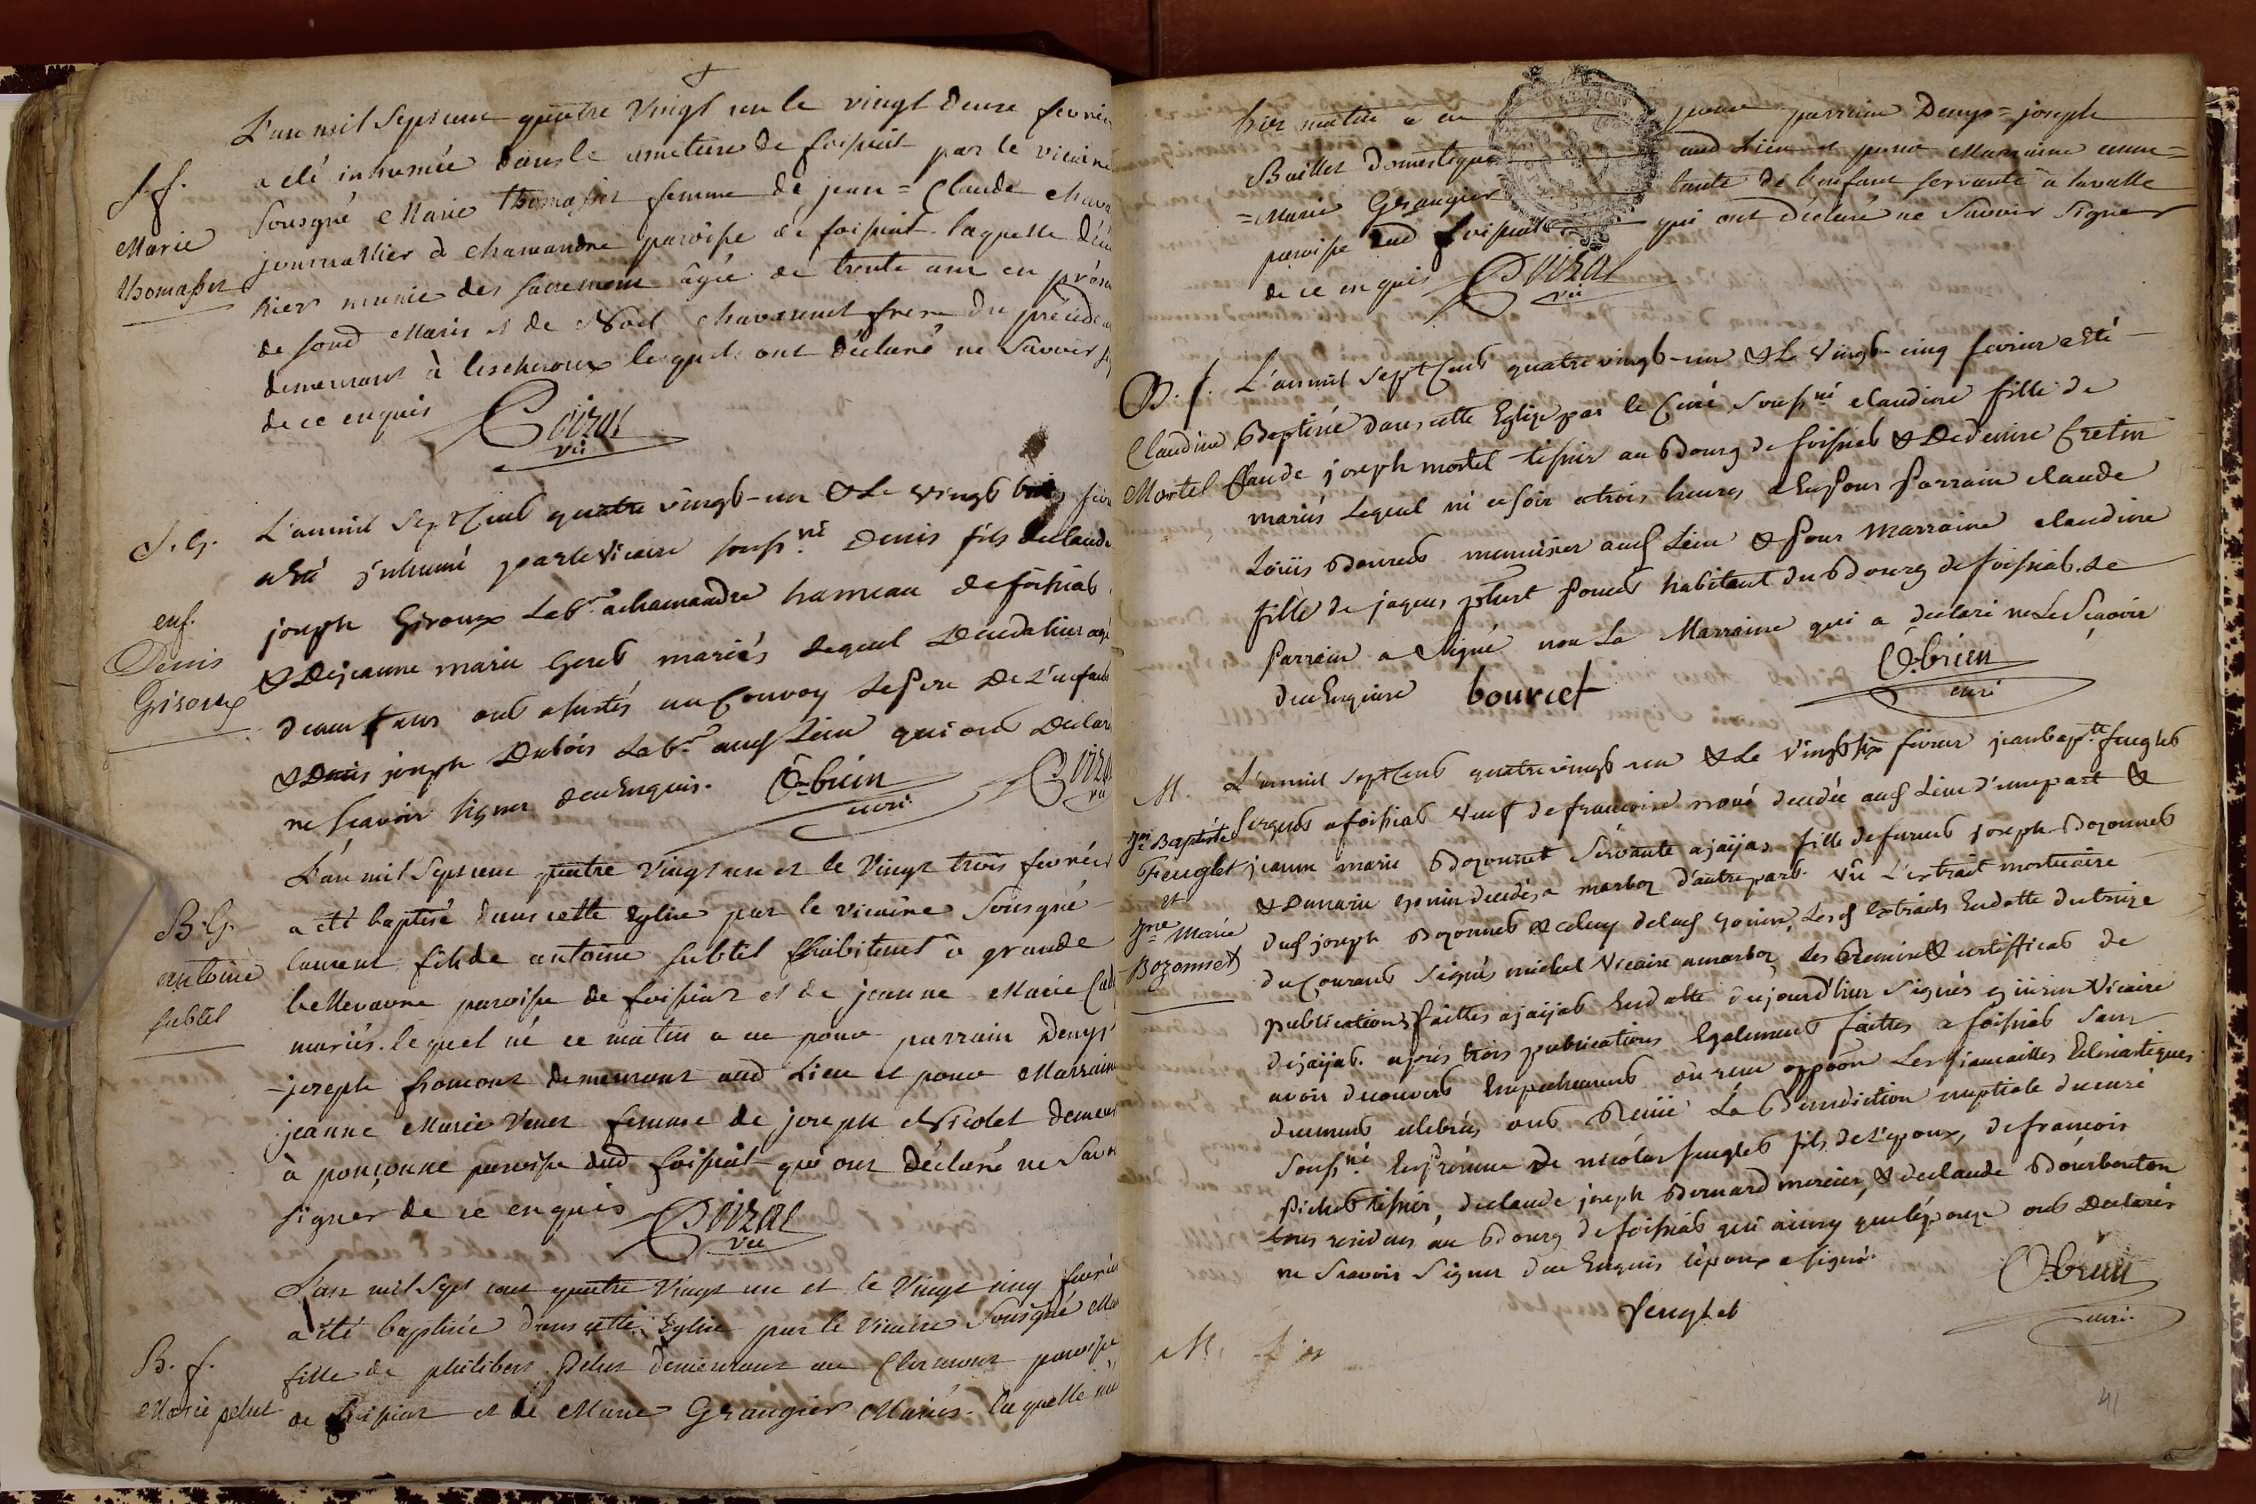 L'an mil Sept cent quatre Vingt un le vingt deuxe fevrier
S.f.
a été inhumée dans le cimetiere de foissiat par le vicaire
Marie
thomasset
Sousigné Marie thomasset femme de jean = Claude chava
journallier à chamandre paroisse de foissiat laquelle
hier munie des sacremens âgée de trente ans en
de sond Maris et de Noel chavannet frere du
demeurant à lescheroux lesquels ont déclaré ne Savoir
de ce enquis
Boizat
vic
S. G.
enf.
Denis
Giroux
L'an mil Sept Cent quatre vingt-un & Le vingt
a Eté inhumé par le Vicaire souss.né Denis fils de claude
joseph Giroux Lab.r a chamandre hameau de foissiat
& De jeanne marie mariés Lequel
ont assistés au Convoy Le pere De L'enfant
& Denis joseph Dubois Lab.r aud Lieu qui ont Declaré
ne sçavoir signer de ce Enquis.
O-brien
curé
Boizat
vic
B. G.
antoine
subtil
L'an mil Sept cent quatre Vingt un et le Vingt trois fevrier
a été baptisé dans cette Eglise par le vicaire Sousigné
laurent fils de antoine subtil habitant à grande
bellevavre paroisse de foissiat et de jeanne Marie
mariés. lequel né ce matin a eu pour parrain Denys
-joseph fromont demeurant aud Lieu et pour Marraine
jeanne Marie Vener femme de joseph Nicolet
à ponçonne paroisse dud foissiat qui ont déclaré ne
signer de ce enquis
Boizat
vic
B. f.
Marie pelut
L'an mil Sept cent quatre Vingt un et le Vingt cinq fevrier
a été baptisée dans cette Eglise par le vicaire Sousigné
fille de philibert Pelut demeurant au Clermont paroisse
de foissiat et de Marie Grangier Mariés. laquelle née
hier matin a eu pour parrain Denys = joseph
Baillet domestique aud Lieu et pour Marraine anne =
= Marie Grangier tante de l'enfant servante à
paroisse dud foissiat qui ont déclaré ne Savoir Signer
de ce enquis
Boizat
vic
B. f.
Claudine
Mortel
L'an mil Sept Cent quatre vingt-un & Le Vingt-cinq fevrier a Eté
Baptisée dans cette Eglise par le Curé Souss.né claudine fille de
Claude joseph mortel tissier au Bourg de foissiat & De denise Cretin
mariés Lequel né ce soir a trois heures a Eu pour Parrain claude
Loüis Bourcet menuisier aud Lieu & pour Marraine claudine
fille de jaques habitant du Bourg de foissiat. Le
Parrain a Signé non La Marraine qui a declaré ne Le Sçavoir
de ce Enquise
bourcet
O-brien
curé
M.
Jn Baptiste
Feuglet
et
Jne Marie
Bozonnet
L'an mil Sept Cent quatre vingt-un & Le Vingt six fevrier jean bap.te feuglet
Sergent a foissiat Veuf de francoise decedée aud Lieu d'une part &
jeanne marie Bozonnet Servante a jaijas fille de furent joseph Bozonnet
& De marie gonin decedés a marboz d'autre part. Vû L'extrait mortuaire
dud joseph Bozonnet & celuy de lad gonin, Lesd Extraits En datte du treize
du Courant Signés michel Vicaire a marboz Les Remise & certifficat de
publications faittes a jaijat En datte d'aujourd'huy Signés Vicaire
de jaijat. aprés trois publications Egalement faittes a foissiat sans
avoir decouvert Empechement où reçu oppôon Les fiancailles Eclesiastiques
duement celebrées ont Reçüe La Benediction nuptiale du curé
Souss.né En presence de nicolas feuglet fils de L'epoux, de francois
Pichet tissier, de claude joseph Bernard mercier, & de claude Bourbouton
tous residens au Bourg de foissiat qui ainsy que l'épouze ont Declarés
ne Scavoir Signer de ce Enquis l'époux a signé.
feuglet
O-brien
curé.
M.
41